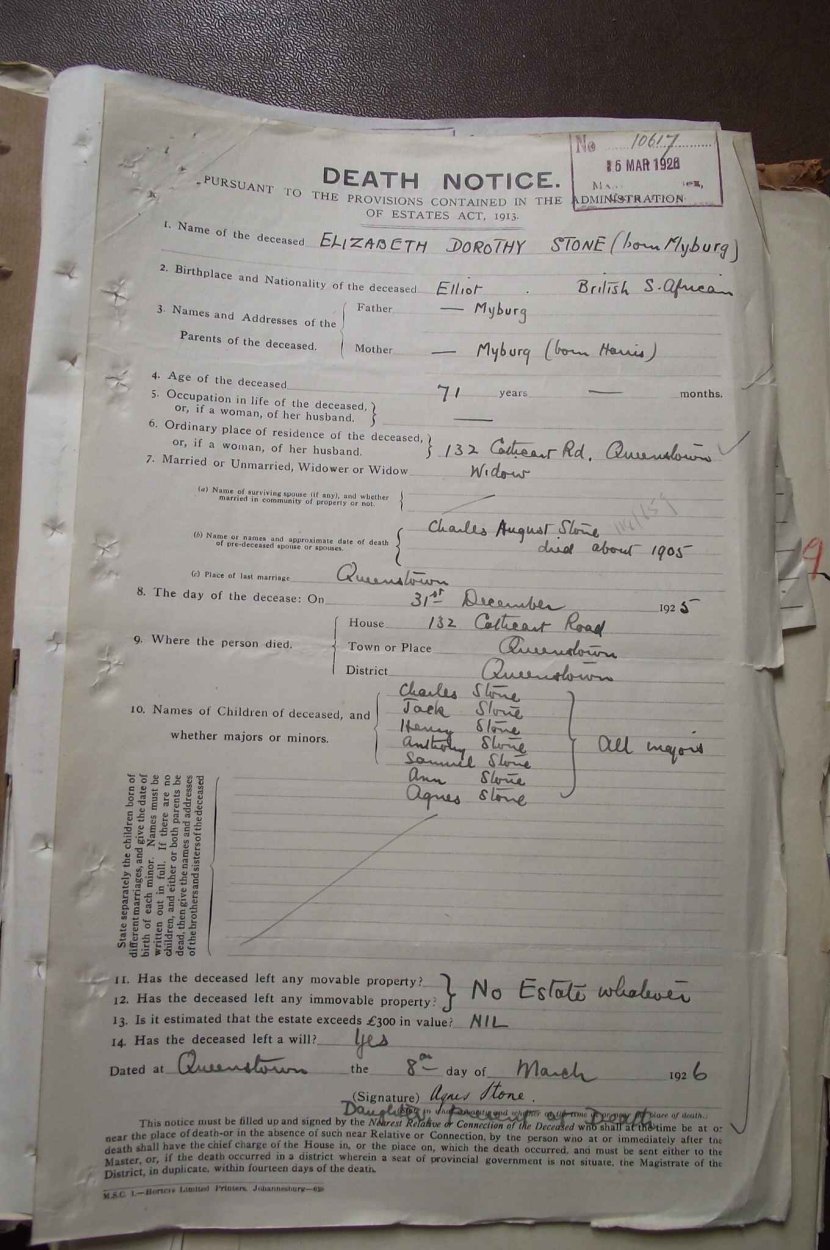 No 10617
15 MAR 1926
DEATH NOTICE.
PURSUANT TO THE PROVISIONS CONTAINED IN THE ADMINISTRATION
OF ESTATES ACT, 1913.
1. Name of the deceased ELIZABETH DOROTHY STONE (born Myburg)
2. Birthplace and Nationality of the deceased Elliot . British S. African
3. Names and Addresses of the Parents of the deceased.
Father — Myburg
Mother — Myburg (born Harris)
4. Age of the deceased 71 years — months.
5. Occupation in life of the deceased,
or, if a woman, of her husband. —
6. Ordinary place of residence of the deceased,
or, if a woman, of her husband. 132 Cathcart Rd. Queenstown
7. Married or Unmarried, Widower or Widow Widow
(a) Name of surviving spouse (if any), and whether
married in community of property or not.
(b) Name or names and approximate date of death
of pre-deceased spouse or spouses.
Charles August Stone
died about 1905
(c) Place of last marriage Queenstown
8. The day of the decease: On 31st December 1925
9. Where the person died.
House 132 Cathcart Road
Town or Place Queenstown
District Queenstown
10. Names of Children of deceased, and
whether majors or minors.
Charles Stone
Jack Stone
Henry Stone
Anthony Stone
Samuel Stone
Ann Stone
Agnes Stone
All majors
State separately the children born of
different marriages, and give the date of
birth of each minor. Names must be
written out in full. If there are no
children, and either or both parents be
dead, then give the names and addresses
of the brothers and sisters of the deceased
11. Has the deceased left any movable property?
12. Has the deceased left any immovable property?
No Estate whatever
13. Is it estimated that the estate exceeds £300 in value? NIL
14. Has the deceased left a will? Yes
Dated at Queenstown the 8th day of March 1926
(Signature) Agnes Stone.
Daughter Present at Death
This notice must be filled up and signed by the Nearest Relative or Connection of the Deceased who shall at the time be at or
near the place of death-or in the absence of such near Relative or Connection, by the person who at or immediately after the
death shall have the chief charge of the House in, or the place on, which the death occurred, and must be sent either to the
Master, or, if the death occurred in a district wherein a seat of provincial government is not situate, the Magistrate of the
District, in duplicate, within fourteen days of the death.
M.S.C. 1.—Hortors Limited Printers, Johannesburg—